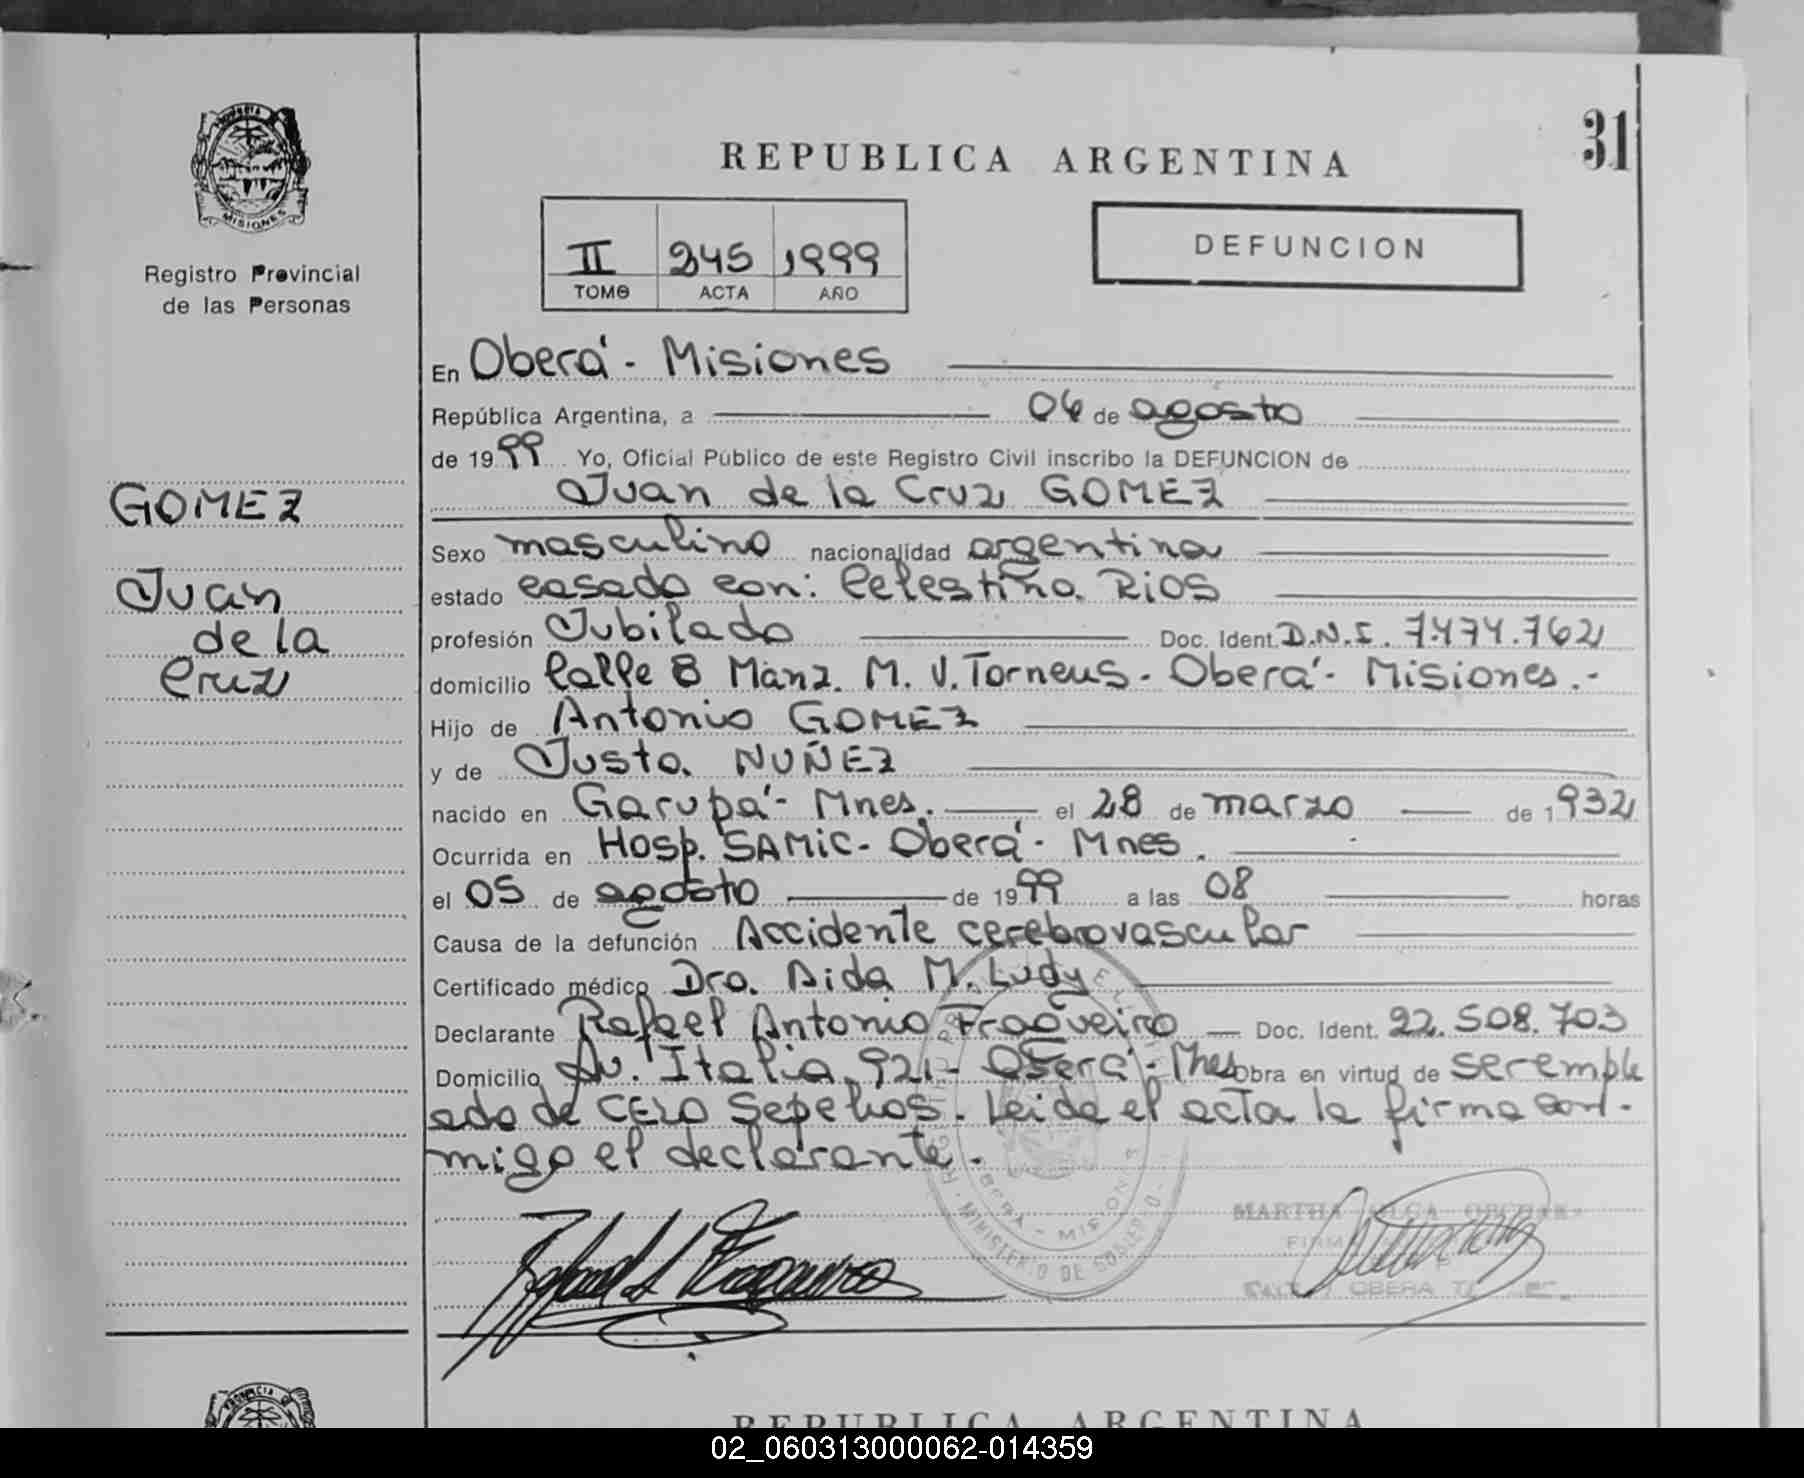 REPUBLICA ARGENTINA
31
MISIONES
Registro Provincial
de las Personas
II 245 1999
TOMO ACTA AÑO
DEFUNCION
GOMEZ
Juan
de la
Cruz
En Oberá - Misiones
República Argentina, a 06 de agosto
de 1999 Yo, Oficial Público de este Registro Civil inscribo la DEFUNCION de
Juan de la Cruz GOMEZ
Sexo masculino nacionalidad argentina
estado casado con: Celestina RIOS
profesión Jubilado Doc. Ident. D.N.I. 7.474.762
domicilio Calle 8 Manz. M. V. Torneus - Oberá - Misiones.-
Hijo de Antonio GOMEZ
y de Justa NUÑEZ
nacido en Garupá - Mnes. el 28 de marzo de 1932
Ocurrida en Hosp. SAMIC - Oberá - Mnes.
el 05 de agosto de 1999 a las 08 horas
Causa de la defunción Accidente cerebrovascular
Certificado médico Dra. Aida M. Ludy
Declarante Rafael Antonio Fragueiro Doc. Ident. 22.508.703
Domicilio Av. Italia 921 - Oberá - Mnes Obra en virtud de ser emple
ado de CELO Sepelios. Leida el acta la firma con-
migo el declarante.
MINISTERIO DE GOBIERNO
OBERA - MISIONES
MARTHA OLGA
FIRMA
OBERA
REPUBLICA ARGENTINA
02_060313000062-014359